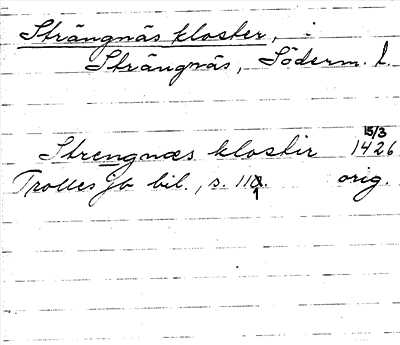 Strängnäs kloster, i
Strängnäs, Söderm. l.
15/3
Strengnæs klostir 1426
Trolles Jb bil., s. 111. orig.